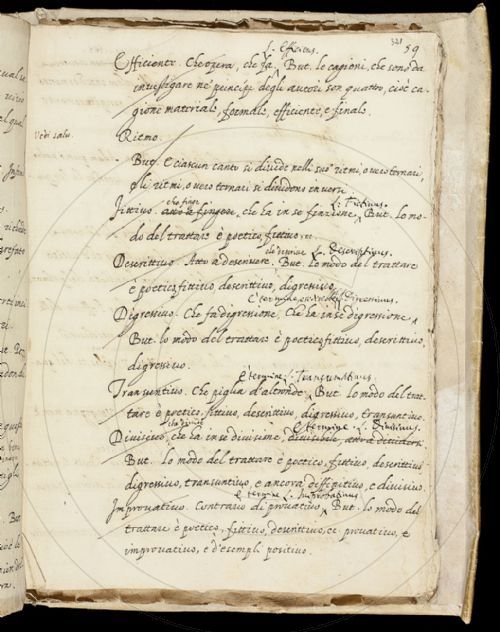 321
59
L. Efficiens.
Efficiente. Che opera, che fa. But. le cagioni, che sono da
investigare ne' principi degli autori son quattro, cioè ca-
gione materiale, formale, efficiente, e finale.
Vedi salu.
Ritmo.
But. e ciascun canto si divide nelli suoi ritmi, o vero ternari,
e li ritmi, o vero ternari si dividono in versi
che finge L: Fictivus.
Fittivo. atto a fingere, che ha in se finzione. But. lo mo-
do del trattare è poetico, fittivo, ec.
è termine L. Descriptivus.
Descrittivo. Atto a descrivere. But. Lo modo del trattare
è poetico, fittivo, descrittivo, digressivo.
È termine L. Digressivus.
Digressivo. Che fa digressione, Che ha in se digressione
But. lo modo del trattare è poetico, fittivo, descrittivo,
digressivo.
È termine L: Transumptivus.
Transuntivo. Che piglia d'altronde. But. lo modo del trat-
tare è poetico, fittivo, descrittivo, digressivo, transuntivo.
che divide È termine L. Divisivus.
Divisivo, che ha in se divisione, divisibile, atto a dividere.
But. Lo modo del trattare è poetico, fittivo, descrittivo
digressivo, transuntivo, e ancora diffinitivo, e divisivo.
È termine L. Improbativus.
Improvativo. Contrario di provativo, But. lo modo del
trattare è poetico, fittivo, descrittivo, ec. provativo, e
improvativo, e d'esempli positivo.